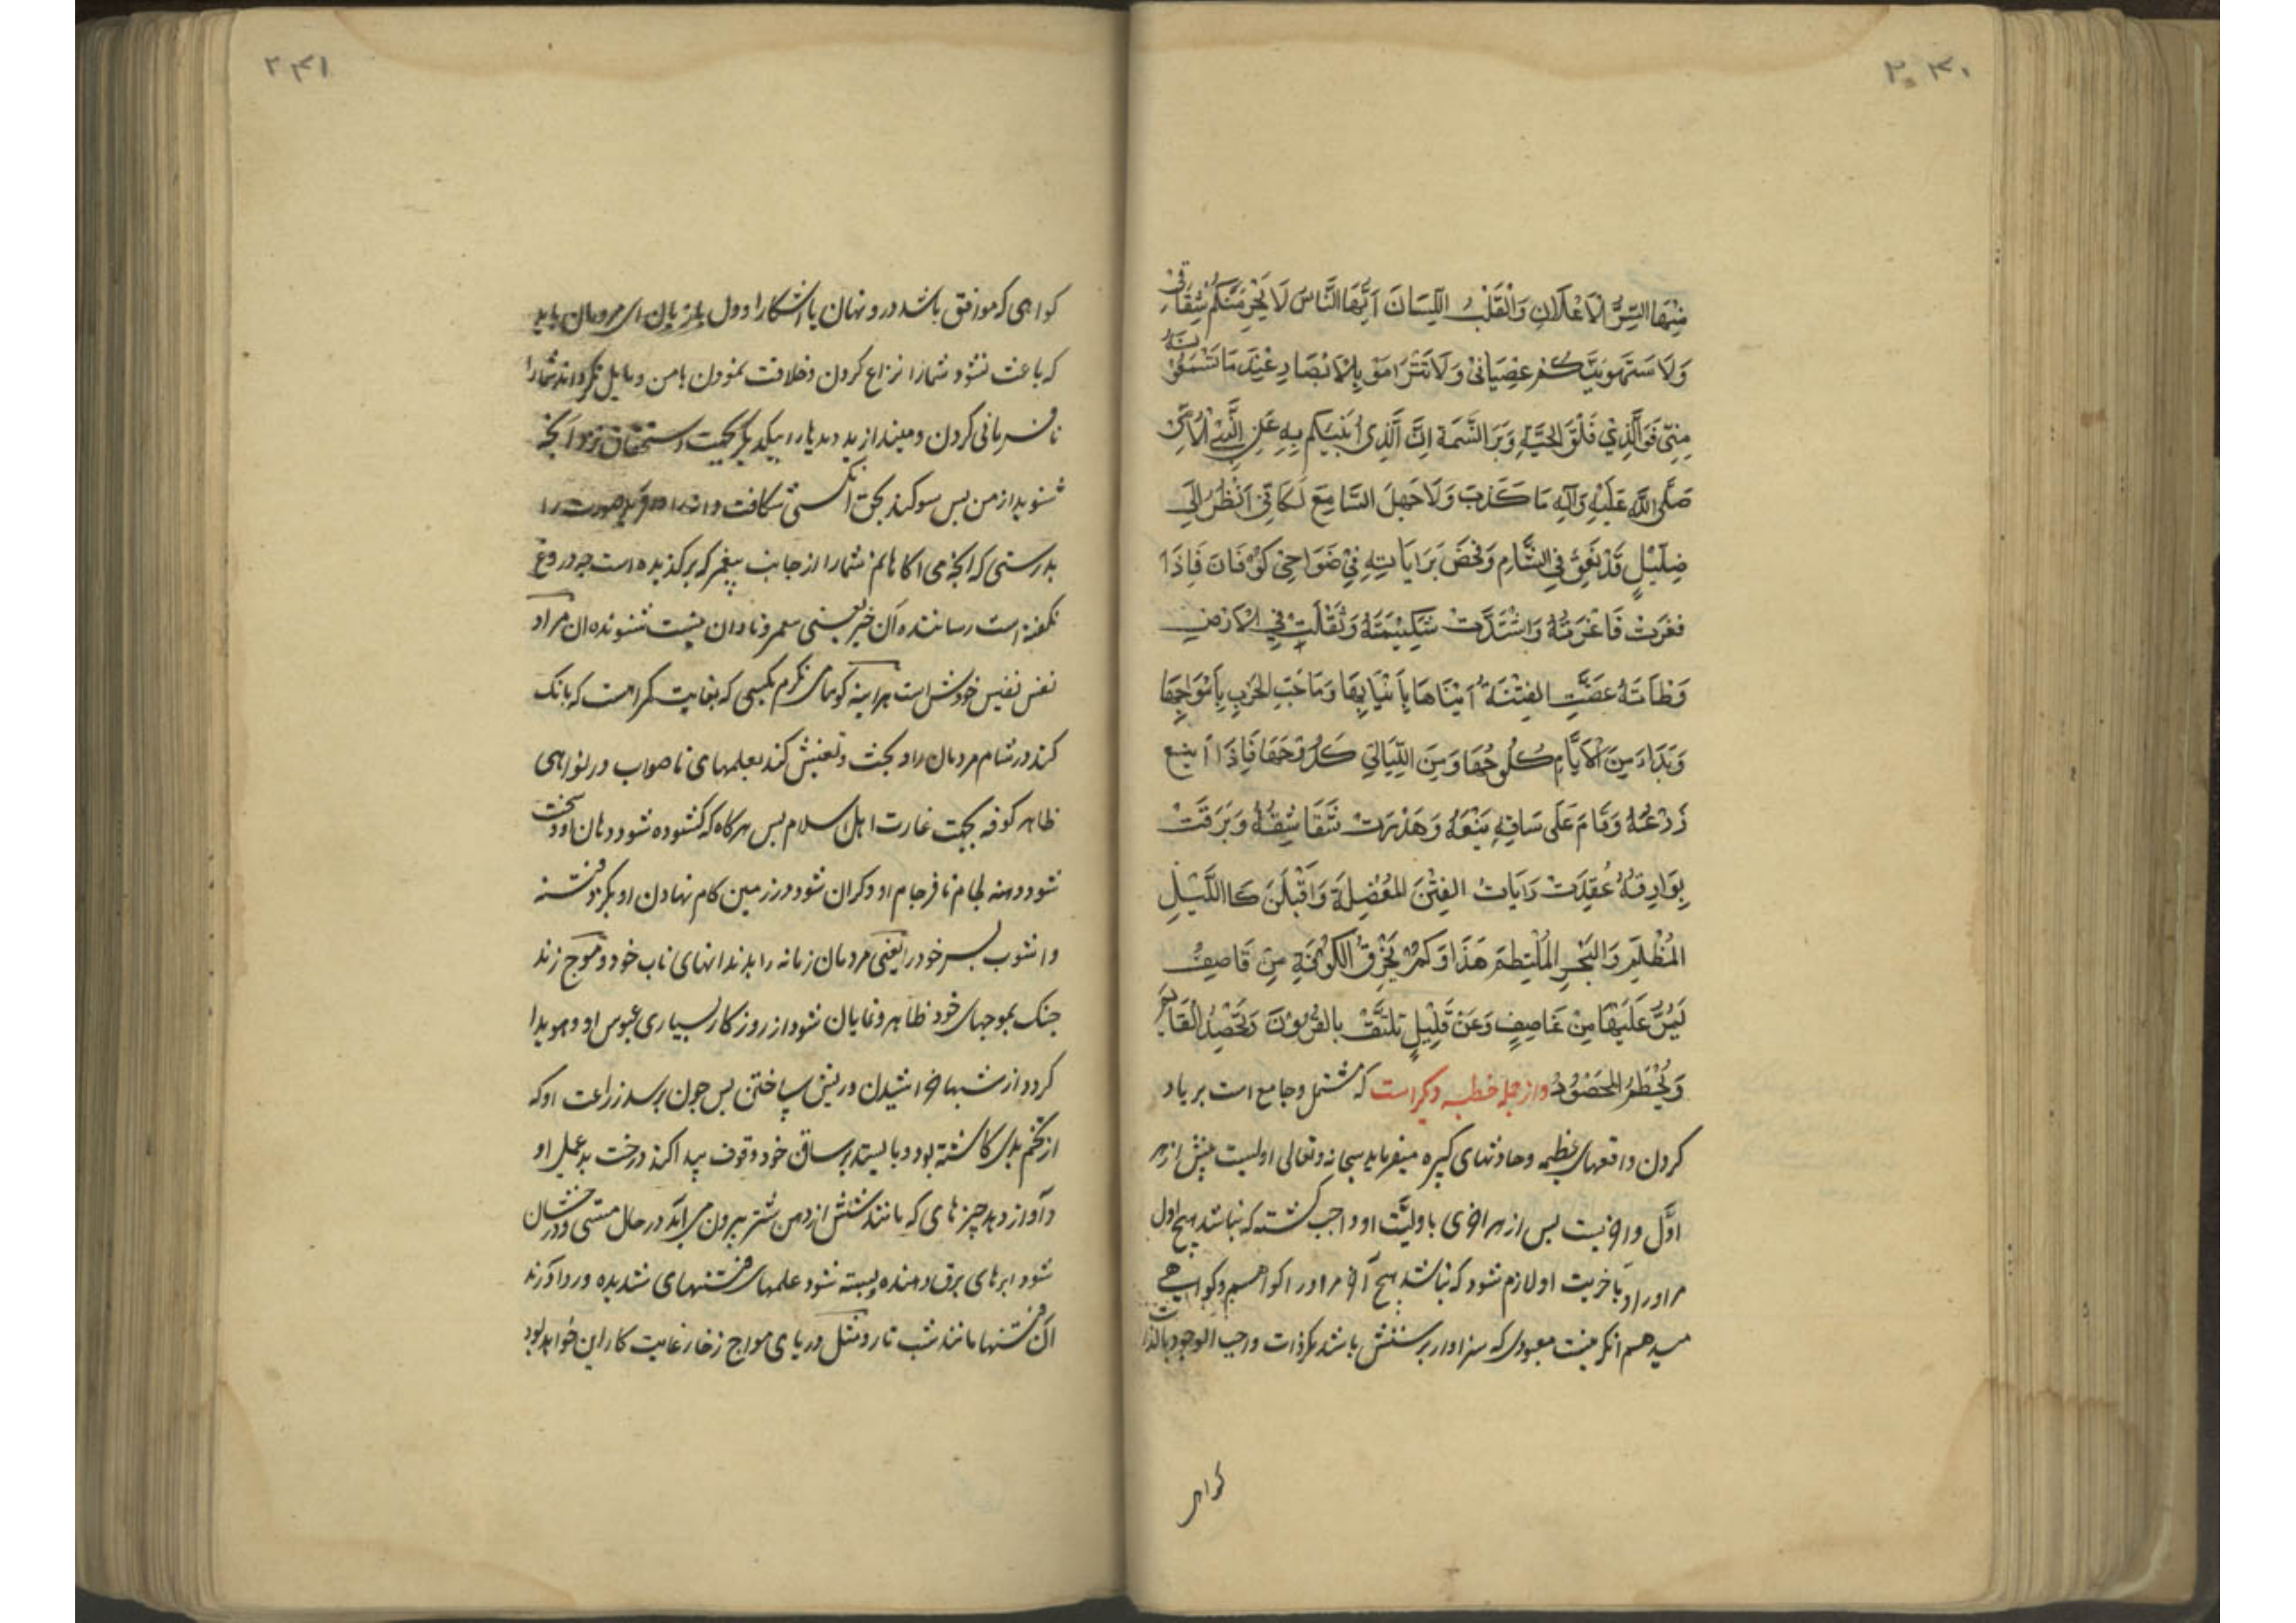 ۲۳۰
فِيْهَا السِّرُّ الْاَعْلَانِ وَالْقَلْبُ اللِّسَانَ اَيُّهَا النَّاسُ لَا يَجْرِمَنَّكُمْ شِقَاقِیْ
وَلَا يَسْتَهْوِيَنَّكُمْ عِصْيَانِیْ وَلَا تَتَرَامَوْ بِالْاَبْصَارِ عِنْدَ مَا تَسْمَعُوْنَهُ
مِنِّیْ فَوَالَّذِیْ فَلَقَ الْحَبَّةَ وَبَرَاَ النَّسَمَةَ اِنَّ الَّذِیْ اُنَبِّئُكُمْ بِهِ عَنِ النَّبِیِّ الْاُمِّیِّ
صَلَّی اللّٰهُ عَلَيْهِ وَآلِهِ مَا كَذَبَ وَلَا جَهِلَ السَّامِعُ لَكَاَنِّیْ اَنْظُرُ اِلَی
ضِلِّيْلٍ قَدْ نَعَقَ فِی الشَّامِ وَفَحَصَ بَرَايَاتِهِ فِیْ ضَوَاحِیْ كُوْفَانَ فَاِذَا
فَغَرَتْ فَاغِرَتُهُ وَاشْتَدَّتْ شَكِيْمَتُهُ وَثَقُلَتْ فِی الْاَرْضِ
وَطْاَتُهُ عَضَّتِ الْفِتْنَةُ اَبْنَاهَا بِاَنْيَابِهَا وَمَاجَتِ الْحَرْبُ بِاَمْوَاجِهَا
وَبَدَاءَ مِنَ الْاَيَّامِ كُلُوْحُهَا وَمِنَ اللَّيَالِیْ كَدُوْحُهَا فَاِذَا اَيْنَعَ
زَرْعُهُ وَقَامَ عَلَی سَاقِهِ يَنْعُهُ وَهَدَرَتْ شَقَاشِقُهُ وَبَرَقَتْ
بَوَارِقُهُ عُقِدَتْ رَايَاتُ الْفِتَنِ الْمُعْضِلَةِ وَاَقْبَلْنَ كَاللَّيْلِ
الْمُظْلِمِ وَالْبَحْرِ الْمُلْتَطِمِ هَذَا وَكَمْ يَخْرِقُ الْكُوْفَةَ مِنْ قَاصِفٍ
يَمُرُّ عَلَيْهَا مِنْ عَاصِفٍ وَعَنْ قَلِيْلٍ تَلْتَفُّ الْقُرُوْنُ بِالْقُرُوْنِ وَيُحْصَدُ الْقَائِمُ
وَيُحْطَمُ الْمَحْصُوْدُ واز جمله خطبه دیکر است که مشتمل و جامع است بر یاد
کردن واقعهای عظیمه و حادثهای کبیره میفرماید سبحانه و تعالی اولیست پیش از هر
اوّل و اخریت پس از هر اخری باولیّت او واجب کشته که نباشد هیچ اول
مر او را و باخریت او لازم شود که نباشد هیچ آخر مر او را و کواهی میدهم کواهی
میدهم انکه نیست معبودی که سزاوار پرستش باشد مکر ذات واجب الوجود بالذات
کواهی
۲۳۱
کواهی که موافق باشد در و نهان با اشکارا و دل با زبان ای مردمان باید
که باعث نشود شما را نزاع کردن و خلافت نمودن با من و مایل نکرداند شما را
نافرمانی کردن و میندازید دیدها را بیکدیکر بجهت استحقاق نزد آنچه
شنوید از من پس سوکند بحق انکسی شکافت دانه را و آفرید صورت را
بدرستی که انچه می اکاهانم شما را از جانب پیغمبر که برکزیده است چه دروغ
نکفته است رساننده آن خبر یعنی پیغمبر و نادان نیست شنونده ان مراد
نفس نفیس خودش است هراینه کویا می نکرم بکسی که بغایت کمراهست که بانک
کند در شام مردمان را و بحث و تفتیش کند بعلمهای ناصواب در نواحی
ظاهر کوفه بجهت غارت اهل اسلام پس هرکاه که کشوده شود دهان او و سخت
شود دهنه لجام نافرجام او و کران شود در زمین کام نهادن او بکزد فتنه
و اشوب پسر خود را یعنی مردمان زمانه را بدندانهای ناب خود و موج زند
جنک بموجهای خود ظاهر و نمایان شود از روزکار بسیاری عبوس او و هویدا
کردد از شبها خراشیدن و ریش ساختن پس چون برسد زراعت او که
از تخم بدی کاشته بود و بایستد بر ساق خود وقوف پیدا کند درخت بدعملی او
و آواز دهد چیزهای که مانند شقشقه از دهن شتر بیرون می آید در حال مستی و درخشان
شود ابرهای برق دهنده و بسته شود علمهای فتنهای شدیده و رو داورند
آن فتنها مانند شب تار و مثل دریای مواج زخار غایت کار این خواهد بود